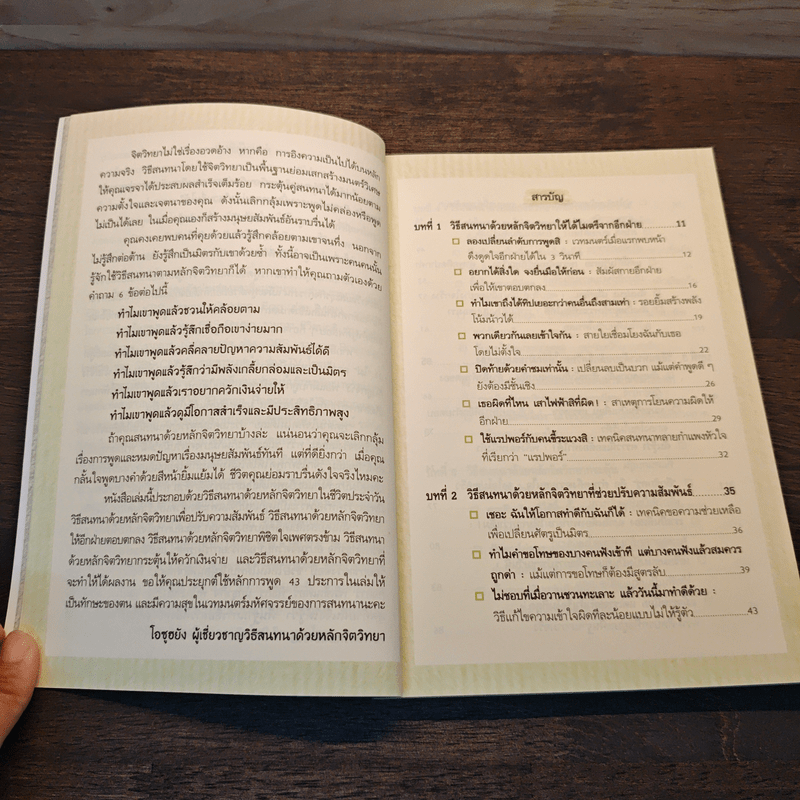 จิตวิทยาไม่ใช่เรื่องอวดอ้าง หากคือ การอิงความเป็นไปได้บนหลัก
ความจริง วิธีสนทนาโดยใช้จิตวิทยาเป็นพื้นฐานย่อมเสกสร้างมนตร์วิเศษ
ให้คุณเจรจาได้ประสบผลสำเร็จเต็มร้อย กระตุ้นคู่สนทนาได้มากน้อยตาม
ความตั้งใจและเจตนาของคุณ ดังนั้นเลิกกลุ้มเพราะพูดไม่คล่องหรือพูด
ไม่เป็นได้เลย ในเมื่อคุณเองก็สร้างมนุษยสัมพันธ์อันราบรื่นได้
คุณคงเคยพบคนที่คุยด้วยแล้วรู้สึกคล้อยตามเขาจนทึ่ง นอกจาก
ไม่รู้สึกต่อต้าน ยังรู้สึกเป็นมิตรกับเขาด้วยซ้ำ ทั้งนี้อาจเป็นเพราะคนคนนั้น
รู้จักใช้วิธีสนทนาตามหลักจิตวิทยาก็ได้ หากเขาทำให้คุณถามตัวเองด้วย
คำถาม 6 ข้อต่อไปนี้
ทำไมเขาพูดแล้วชวนให้คล้อยตาม
ทำไมเขาพูดแล้วรู้สึกเชื่อถือเขาง่ายมาก
ทำไมเขาพูดแล้วคลี่คลายปัญหาความสัมพันธ์ได้ดี
ทำไมเขาพูดแล้วรู้สึกว่ามีพลังเกลี้ยกล่อมและเป็นมิตร
ทำไมเขาพูดแล้วเราอยากควักเงินจ่ายให้
ทำไมเขาพูดแล้วดูมีโอกาสสำเร็จและมีประสิทธิภาพสูง
ถ้าคุณสนทนาด้วยหลักจิตวิทยาบ้างล่ะ แน่นอนว่าคุณจะเลิกกลุ้ม
เรื่องการพูดและหมดปัญหาเรื่องมนุษยสัมพันธ์ทันที แต่ที่ดียิ่งกว่า เมื่อคุณ
กลั้นใจพูดบางคำด้วยสีหน้ายิ้มแย้มได้ ชีวิตคุณย่อมราบรื่นดังใจจริงไหมคะ
หนังสือเล่มนี้ประกอบด้วยวิธีสนทนาด้วยหลักจิตวิทยาในชีวิตประจำวัน
วิธีสนทนาด้วยหลักจิตวิทยาเพื่อปรับความสัมพันธ์ วิธีสนทนาด้วยหลักจิตวิทยา
ให้อีกฝ่ายตอบตกลง วิธีสนทนาด้วยหลักจิตวิทยาพิชิตใจเพศตรงข้าม วิธีสนทนา
ด้วยหลักจิตวิทยากระตุ้นให้ควักเงินจ่าย และวิธีสนทนาด้วยหลักจิตวิทยาที่
จะทำให้ได้ผลงาน ขอให้คุณประยุกต์ใช้หลักการพูด 43 ประการในเล่มให้
เป็นทักษะของตน และมีความสุขในเวทมนตร์มหัศจรรย์ของการสนทนานะคะ
โอซูฮยัง ผู้เชี่ยวชาญวิธีสนทนาด้วยหลักจิตวิทยา
สารบัญ
บทที่ 1 วิธีสนทนาด้วยหลักจิตวิทยาให้ได้ไมตรีจากอีกฝ่าย 11
ลองเปลี่ยนลำดับการพูดสิ : เวทมนตร์เมื่อแรกพบหน้า
ดึงดูดใจอีกฝ่ายได้ใน 3 วินาที 12
อยากได้สิ่งใด จงยื่นมือให้ก่อน : สัมผัสกายอีกฝ่าย
เพื่อให้เขาตอบตกลง 16
ทำไมเขาถึงได้ทิปเยอะกว่าคนอื่นถึงสามเท่า : รอยยิ้มสร้างพลัง
โน้มน้าวได้ 19
พวกเดียวกันเลยเข้าใจกัน : สายใยเชื่อมโยงฉันกับเธอ
โดยไม่ตั้งใจ 22
ปิดท้ายด้วยคำชมเท่านั้น : เปลี่ยนลบเป็นบวก แม้แต่คำพูดดี ๆ
ยังต้องมีชั้นเชิง 26
เธอผิดที่ไหน เสาไฟฟ้าสิที่ผิด! : สาเหตุการโยนความผิดให้
อีกฝ่าย 29
ใช้แรปพอร์กับคนขี้ระแวงสิ : เทคนิคสนทนาทลายกำแพงหัวใจ
ที่เรียกว่า "แรปพอร์" 32
บทที่ 2 วิธีสนทนาด้วยหลักจิตวิทยาที่ช่วยปรับความสัมพันธ์ 35
เชอะ ฉันให้โอกาสทำดีกับฉันก็ได้ : เทคนิคขอความช่วยเหลือ
เพื่อเปลี่ยนศัตรูเป็นมิตร 36
ทำไมคำขอโทษของบางคนฟังเข้าที แต่บางคนฟังแล้วสมควร
ถูกด่า : แม้แต่การขอโทษก็ต้องมีสูตรลับ 39
ไม่ชอบที่เมื่อวานชวนทะเลาะ แล้ววันนี้มาทำดีด้วย :
วิธีแก้ไขความเข้าใจผิดทีละน้อยแบบไม่ให้รู้ตัว 43